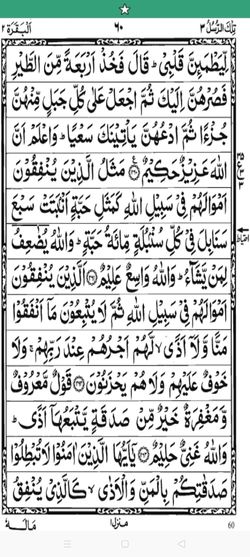 تِلْكَ الرُّسُلُ ٣ ٦٠ اَلْبَقَرَة ٢
لِّيَطْمَىِٕنَّ قَلْبِیْ ؕ قَالَ فَخُذْ اَرْبَعَةً مِّنَ الطَّیْرِ
فَصُرْهُنَّ اِلَیْكَ ثُمَّ اجْعَلْ عَلٰی كُلِّ جَبَلٍ مِّنْهُنَّ
جُزْءًا ثُمَّ ادْعُهُنَّ یَاْتِیْنَكَ سَعْیًا ؕ وَاعْلَمْ اَنَّ
اللّٰهَ عَزِیْزٌ حَكِیْمٌ مَثَلُ الَّذِیْنَ یُنْفِقُوْنَ
اَمْوَالَهُمْ فِیْ سَبِیْلِ اللّٰهِ كَمَثَلِ حَبَّةٍ اَنْۢبَتَتْ سَبْعَ
سَنَابِلَ فِیْ كُلِّ سُنْۢبُلَةٍ مِّائَةُ حَبَّةٍ ؕ وَاللّٰهُ یُضٰعِفُ
لِمَنْ یَّشَآءُ ؕ وَاللّٰهُ وَاسِعٌ عَلِیْمٌ اَلَّذِیْنَ یُنْفِقُوْنَ
اَمْوَالَهُمْ فِیْ سَبِیْلِ اللّٰهِ ثُمَّ لَا یُتْبِعُوْنَ مَاۤ اَنْفَقُوْا
مَنًّا وَّلَاۤ اَذًی ۙ لَّهُمْ اَجْرُهُمْ عِنْدَ رَبِّهِمْ ۚ وَلَا
خَوْفٌ عَلَیْهِمْ وَلَا هُمْ یَحْزَنُوْنَ قَوْلٌ مَّعْرُوْفٌ
وَّمَغْفِرَةٌ خَیْرٌ مِّنْ صَدَقَةٍ یَّتْبَعُهَاۤ اَذًی ؕ
وَاللّٰهُ غَنِیٌّ حَلِیْمٌ یٰۤاَیُّهَا الَّذِیْنَ اٰمَنُوْا لَا تُبْطِلُوْا
صَدَقٰتِكُمْ بِالْمَنِّ وَالْاَذٰی ۙ كَالَّذِیْ یُنْفِقُ
منزل ١ 60